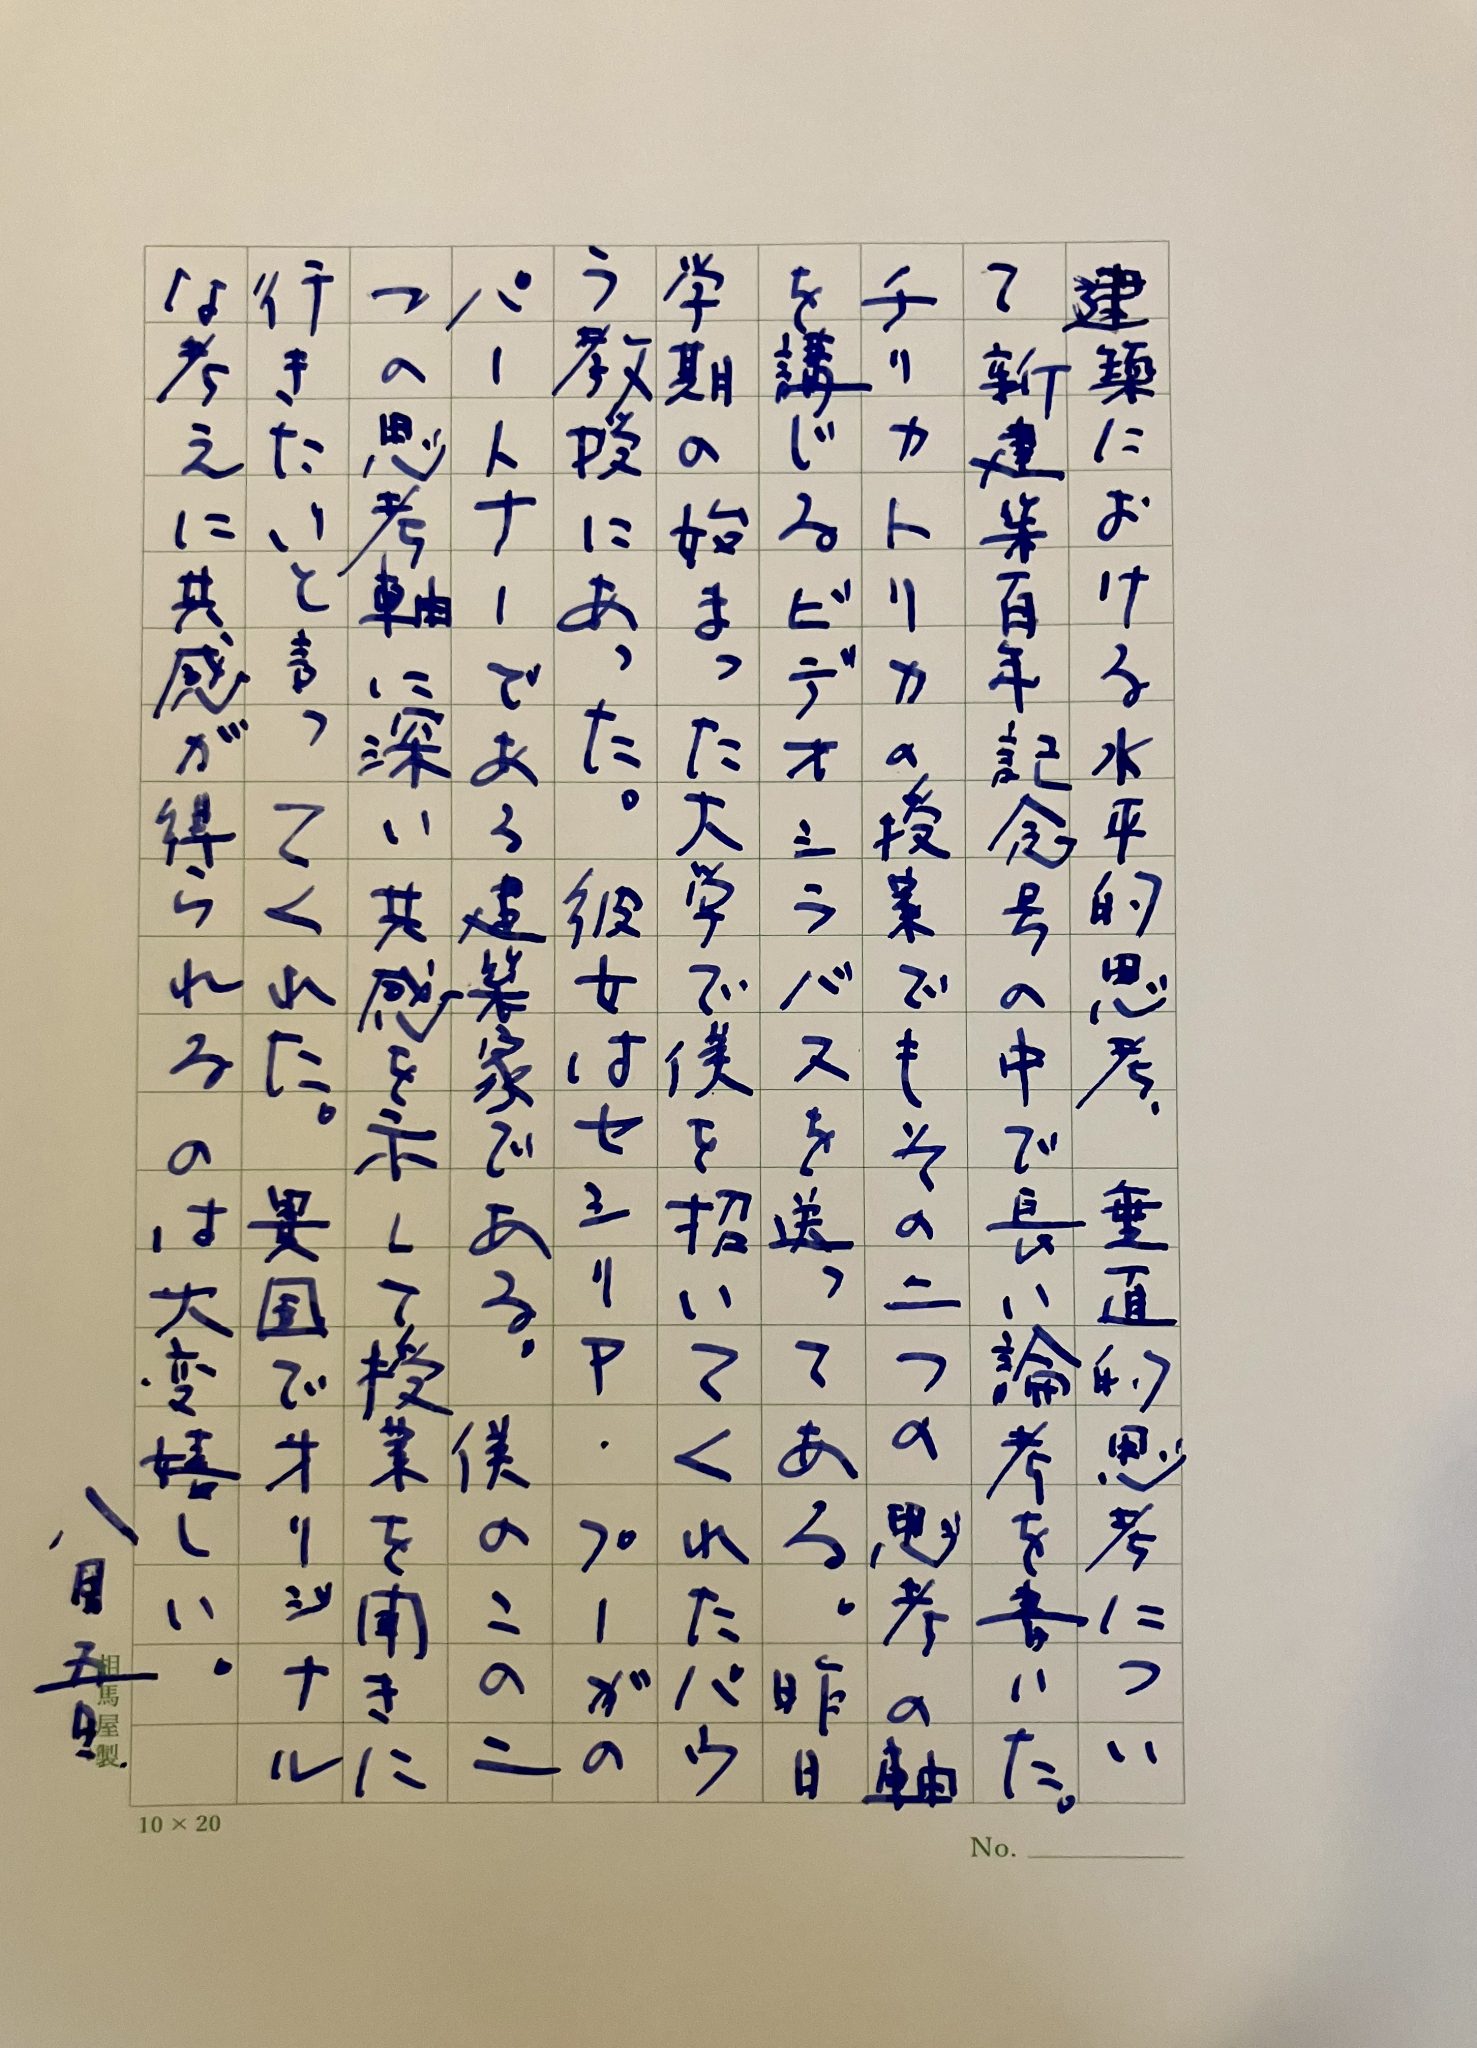 建築における水平的思考、垂直的思考につい
て新建築百年記念号の中で長い論考を書いた。
チリカトリカの授業でもその二つの思考の軸
を講じるビデオシラバスを送ってある。昨日
学期の始まった大学で僕を招いてくれたパウ
う教授にあった。彼女はセシリア・プーガの
パートナーである建築家である。僕のこの二
つの思考軸に深い共感を示して授業を聞きに
行きたいと言ってくれた。異国でオリジナル
な考えに共感が得られるのは大変嬉しい。
八月五日.
相馬屋製
10 × 20
No.